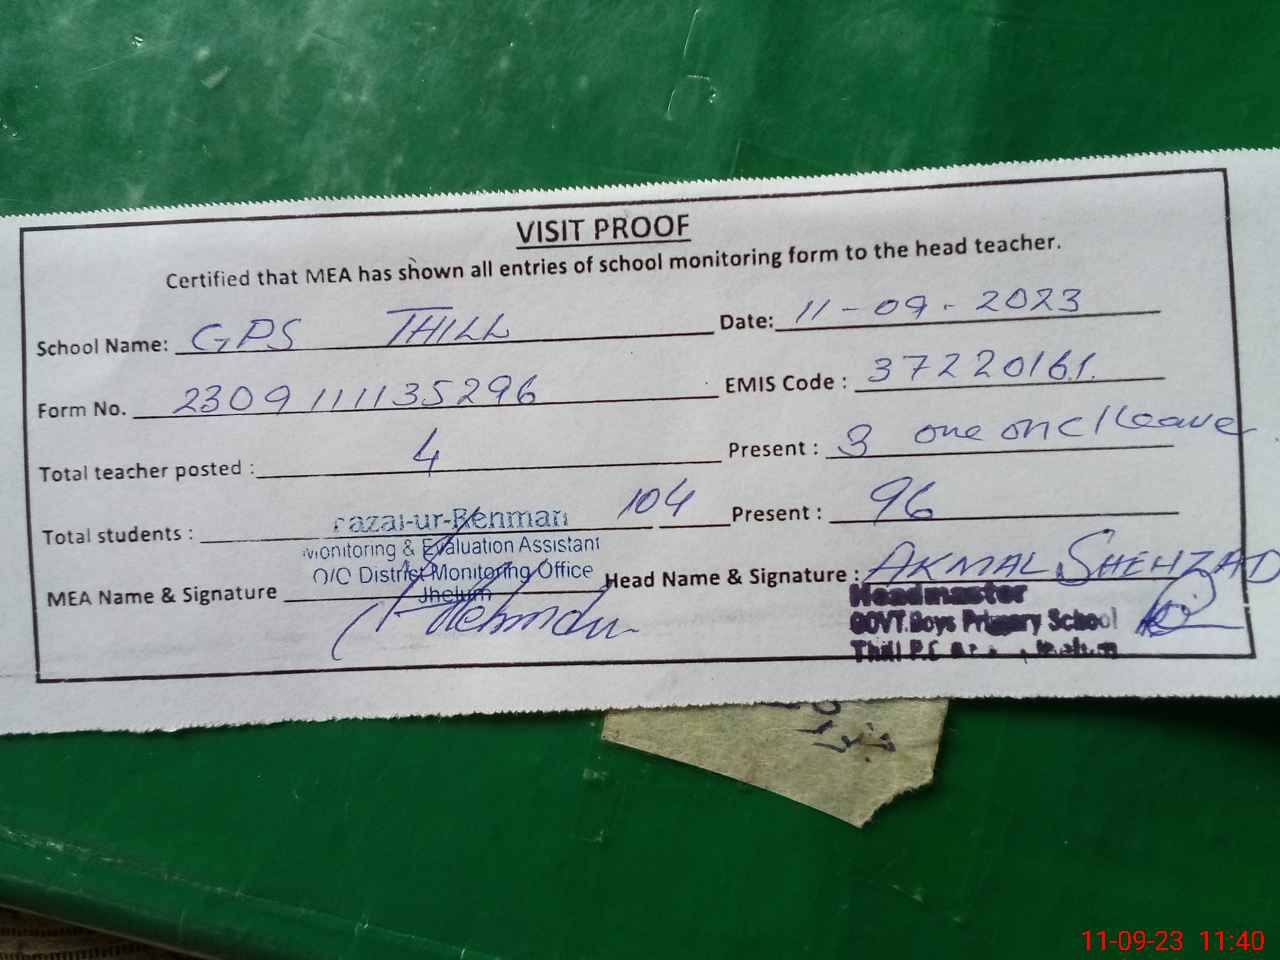 VISIT PROOF
Certified that MEA has shown all entries of school monitoring form to the head teacher.
School Name: GPS THILL Date: 11-09-2023
Form No. 2309111135296 EMIS Code: 37220161
Total teacher posted: 4 Present: 3 one on leave
Total students: 104 Present: 96
Fazal-ur-Rehman
Monitoring & Evaluation Assistant
O/C District Monitoring Office
Jhelum
MEA Name & Signature Head Name & Signature: AKMAL SHEHZAD
Headmaster
GOVT.Boys Primary School
Thill
11-09-23 11:40